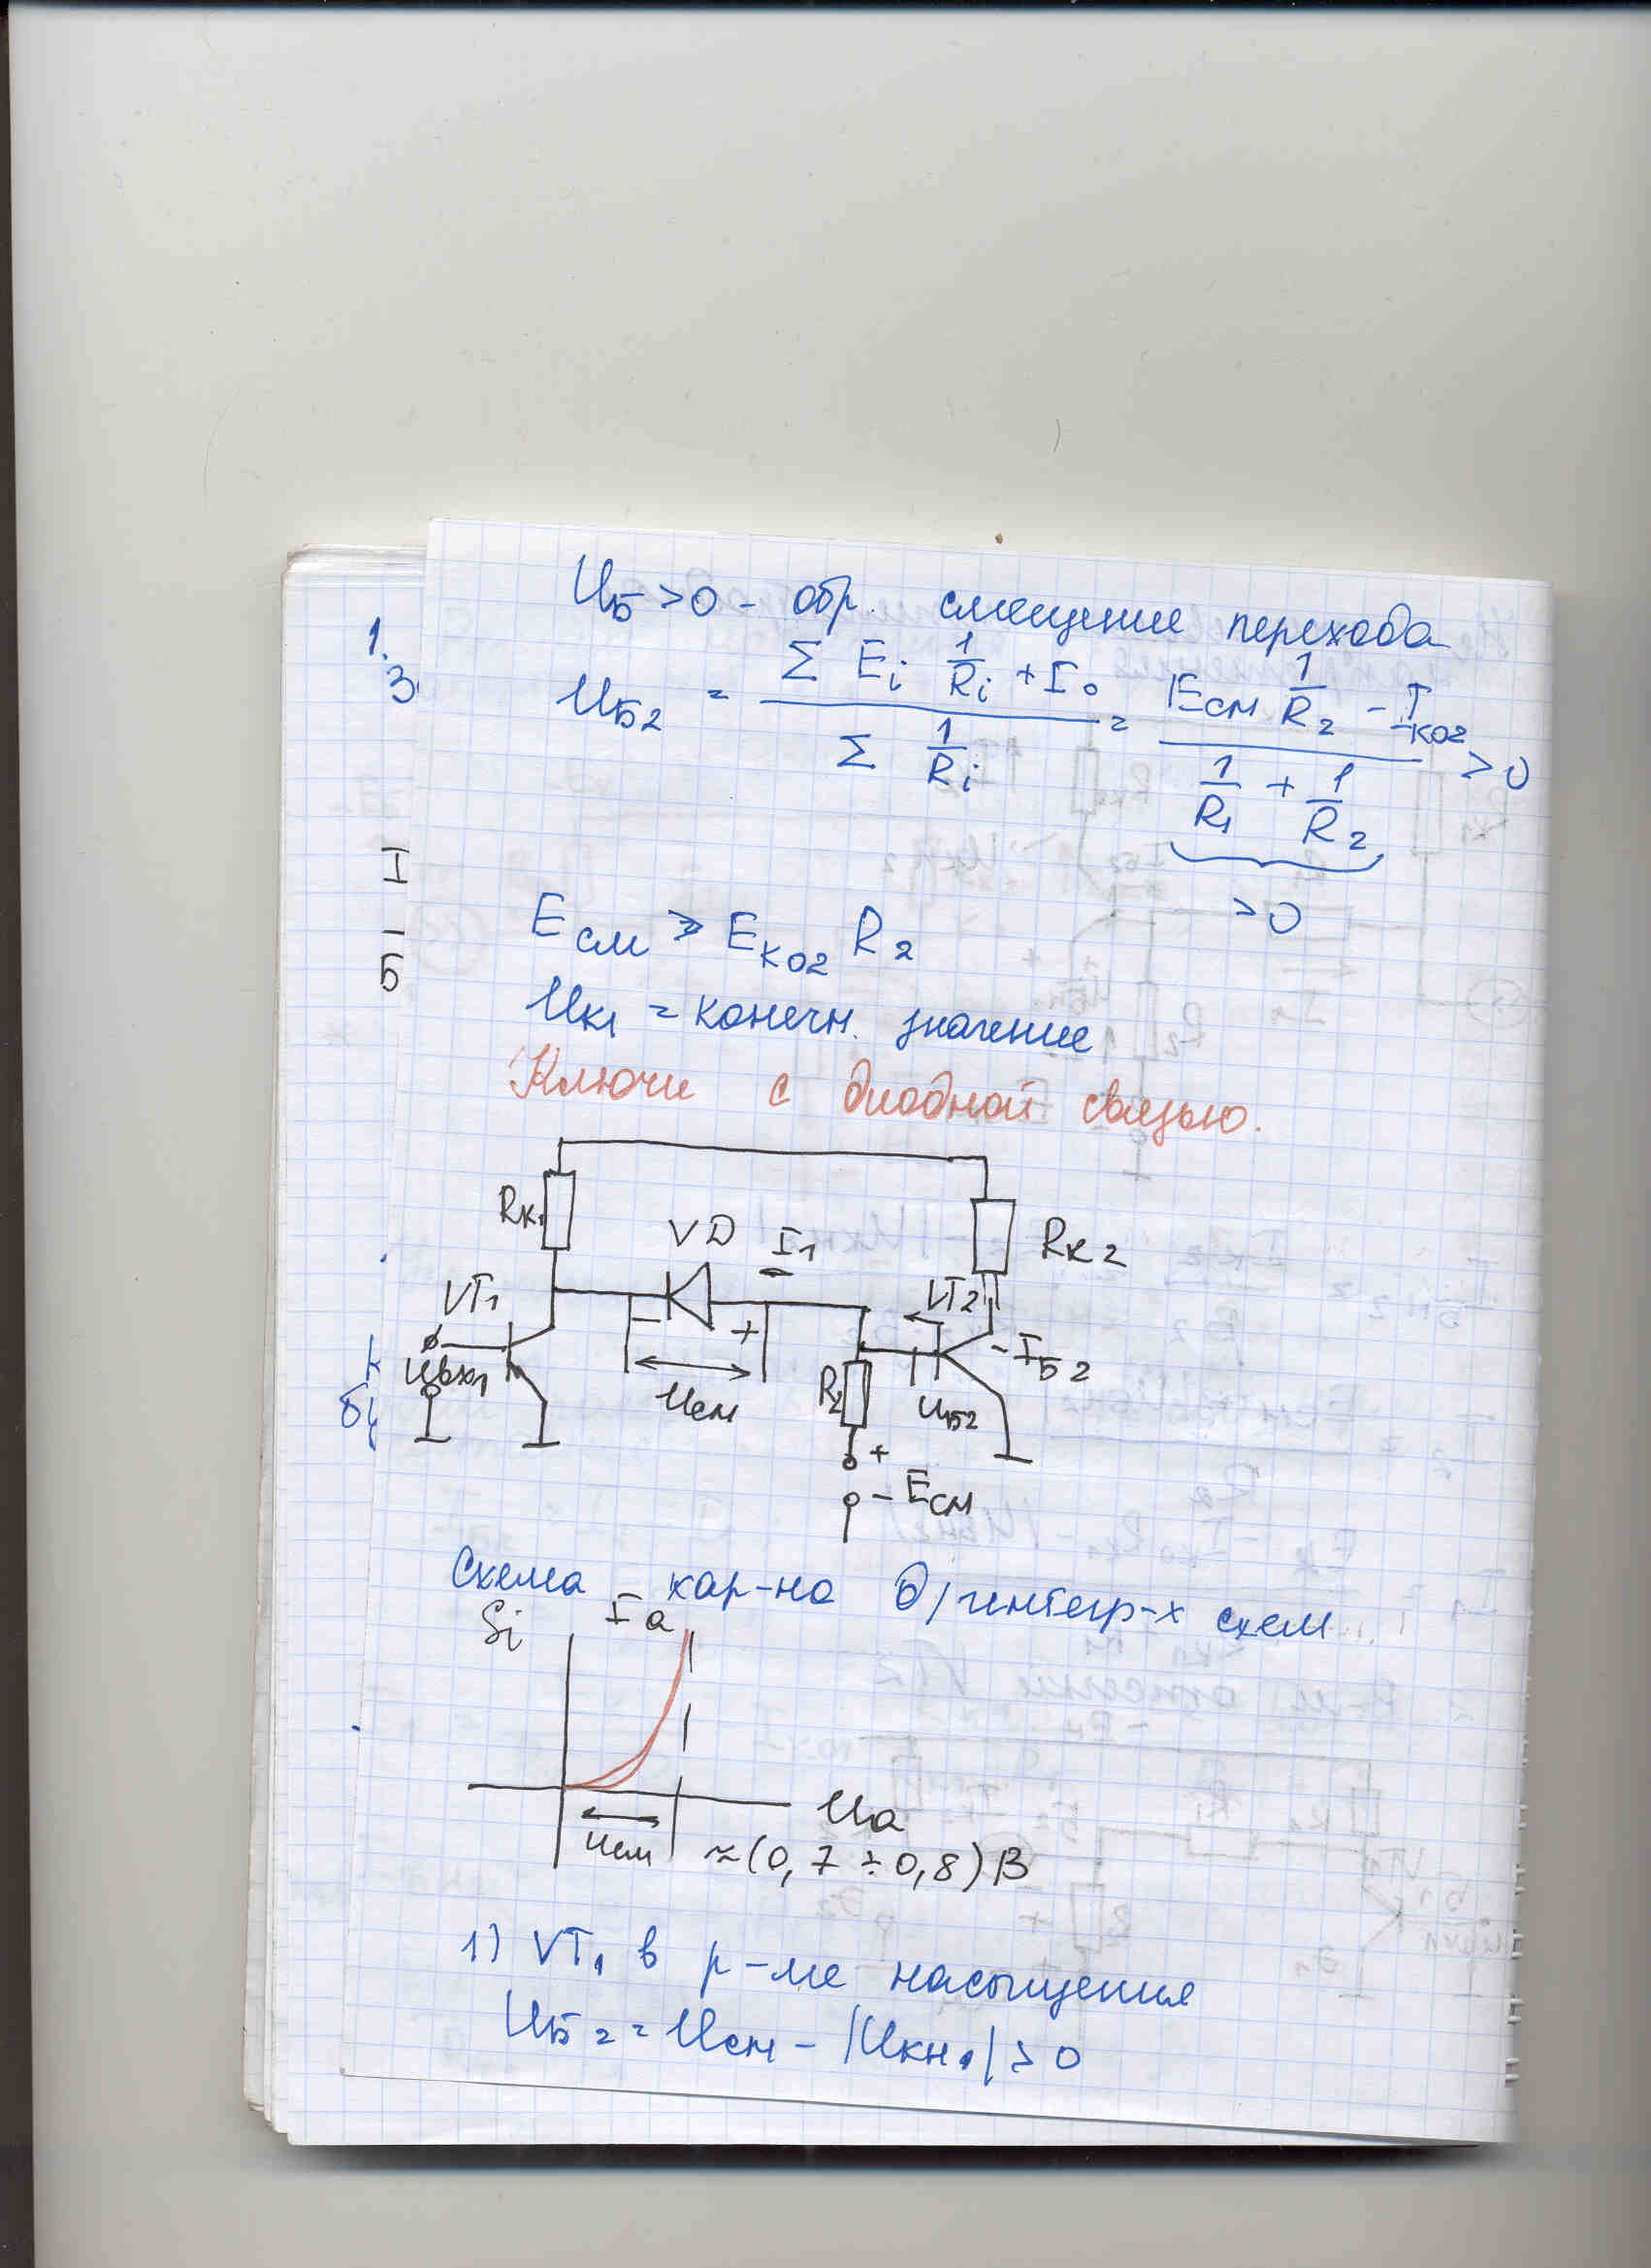 U_Б > 0 - обр. смещение перехода
U_Б2 = (Σ E_i 1/R_i + I_0) / (Σ 1/R_i) = (E_см 1/R_2 - I_КО2) / (1/R_1 + 1/R_2) > 0
> 0
1.
З
I
Б
E_см ≥ E_КО2 R_2
U_К1 = конечн. значение
Ключи с диодной связью.
R_К1
VD
I_1
R_К2
VT_1
VT_2
- +
- I_Б2
U_вх1
U_см
R_2
U_Б2
+
- E_см
Схема - хар-на д/интегр-х схем
Si
I_a
U_a
U_см
≈(0,7 ÷ 0,8) В
1) VT_1 в р-ме насыщения
U_Б2 = U_см - |U_КН1| > 0